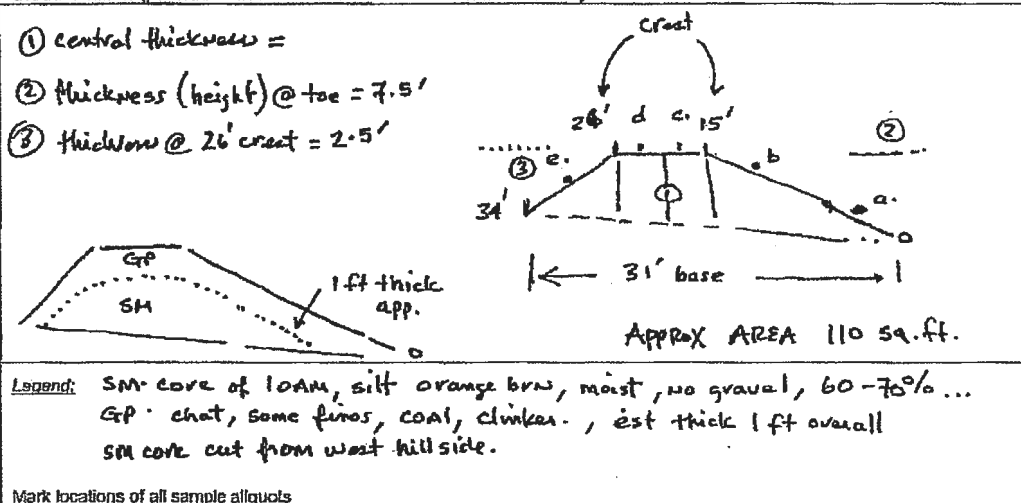 ① central thickness =
② thickness (height) @ toe = 7.5'
③ thickness @ 26' crest = 2.5'
crest
26' d c. 15'
e. ③ b ②
34' ① a.
0
31' base
Approx AREA 110 sq.ft.
GP
SM
1 ft thick
app.
0
Legend: SM- core of lOAM, silt orange brn, moist, no gravel, 60-70%...
GP - chat, some fines, coal, clinker., est thick 1 ft overall
SM core cut from west hill side.
Mark locations of all sample aliquots